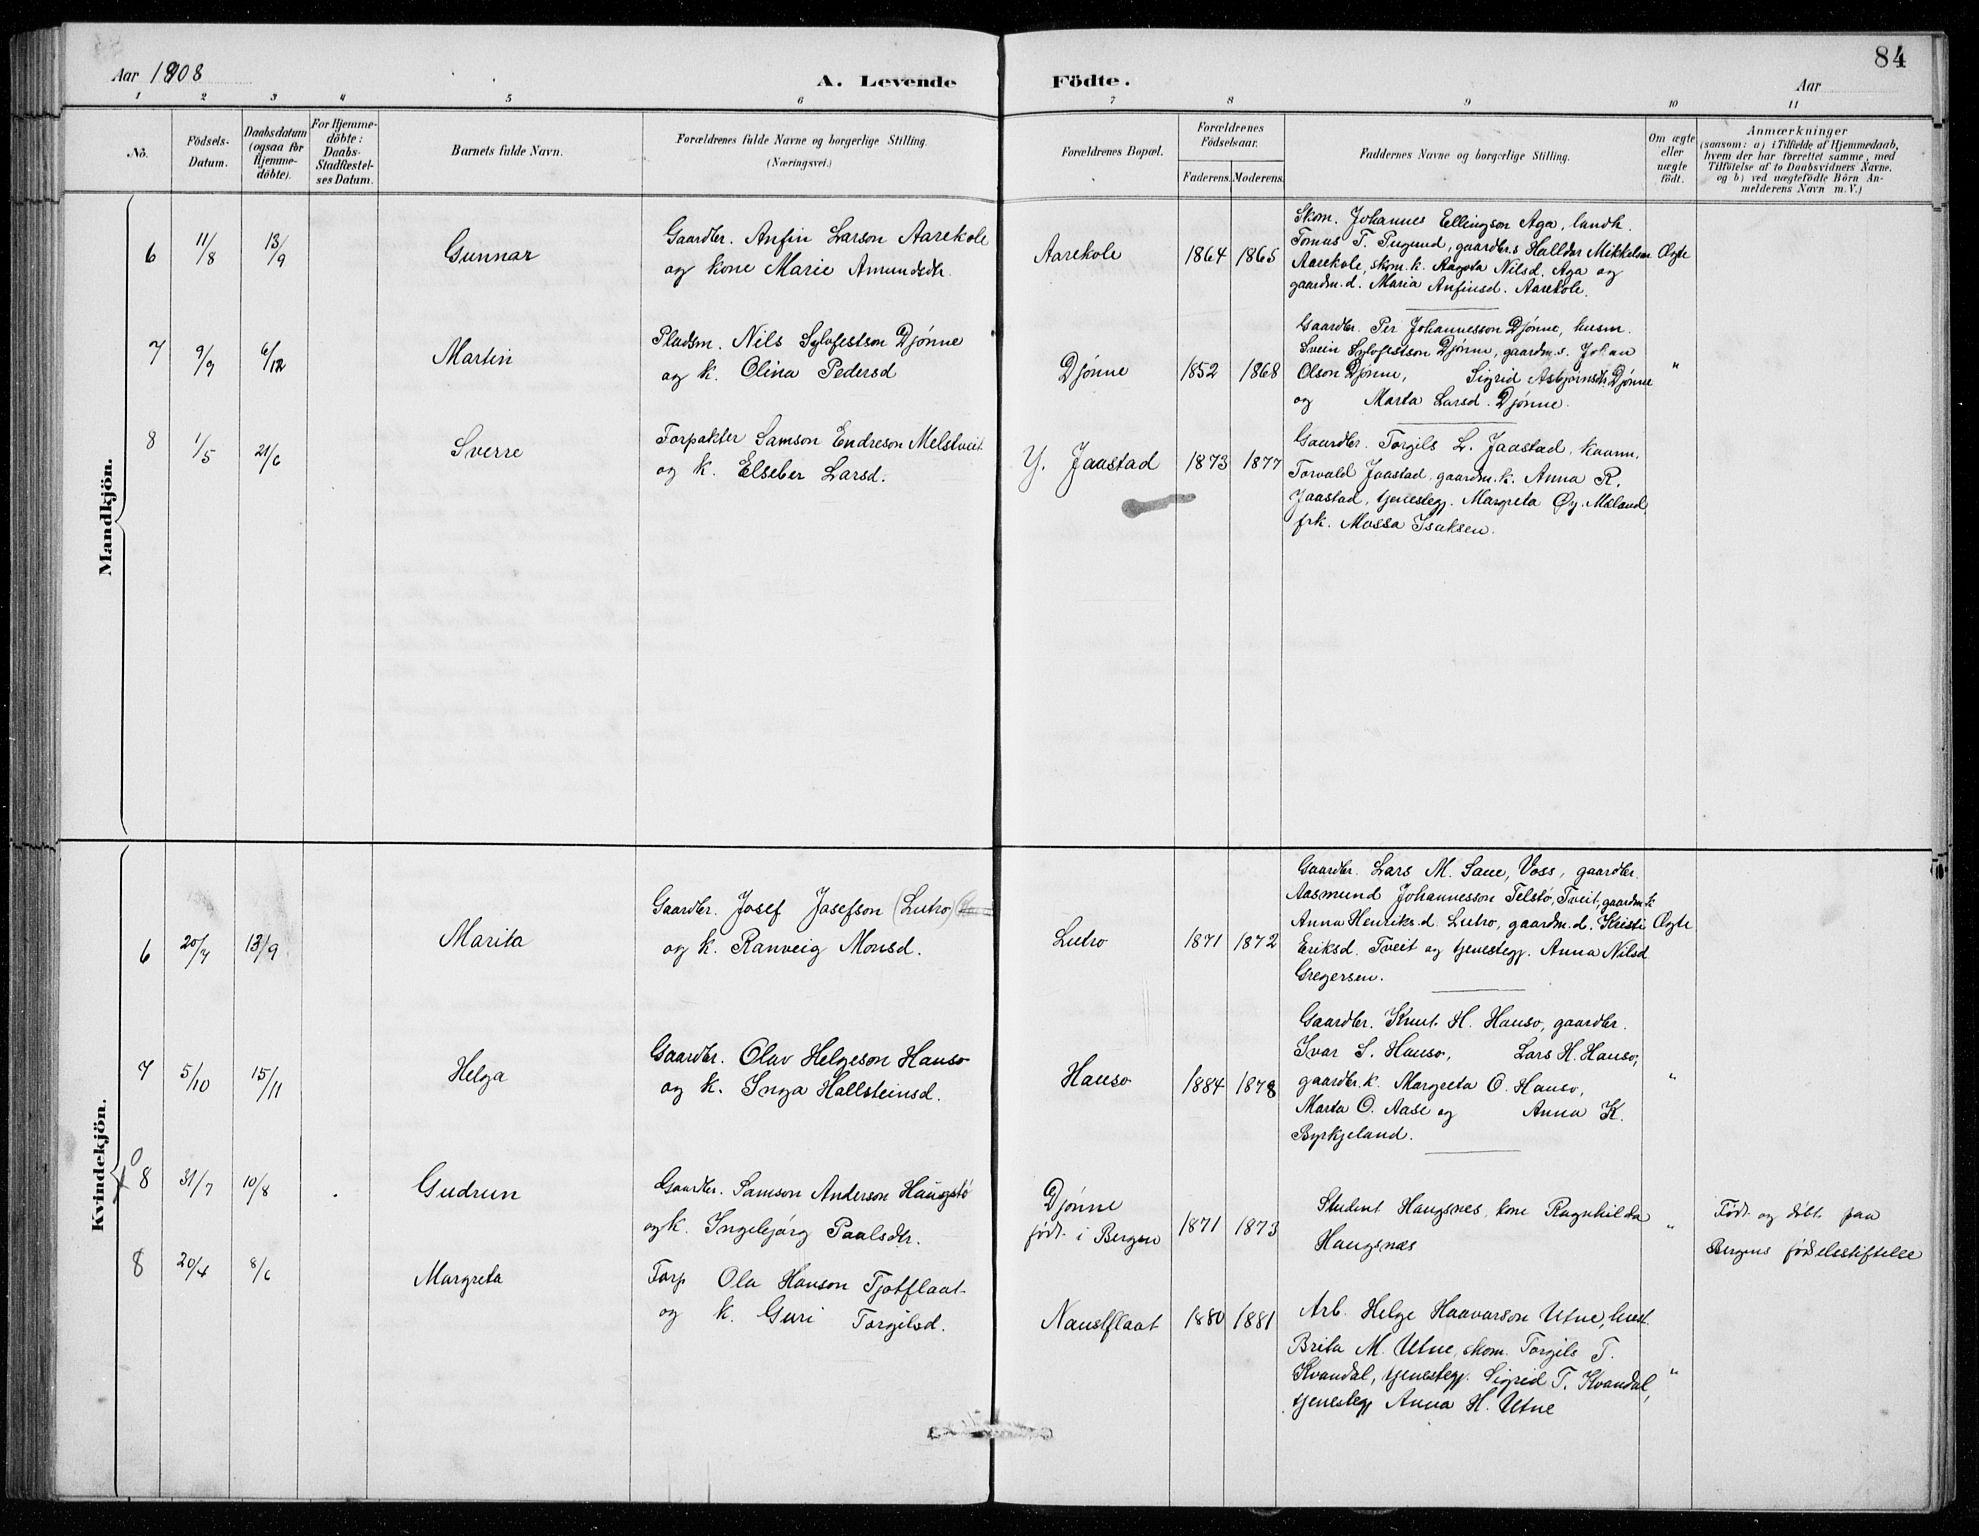 84
Aar 1908
A. Levende Födte.
Aar
1 2 3 4 5 6 7 8 9 10 11
No.
Födsels-Datum.
Daabsdatum (ogsaa for Hjemme-döbte).
For Hjemme-döbte: Daabs-Stadfæstel-ses Datum.
Barnets fulde Navn.
Forældrenes fulde Navne og borgerlige Stilling.
(Næringsvei.)
Forældrenes Bopæl.
Forældrenes Födselsaar.
Faderens. Moderens.
Faddernes Navne og borgerlige Stilling.
Om ægte eller uægte födt.
Anmærkninger
(saasom: a) i Tilfælde af Hjemmedaab,
hvem der har forrettet samme, med
Tilföielse af to Daabsvidners Navne,
og b) ved uægtefödte Börn An-
melderens Navn m. V.)
Mandkjön.
6 11/8 13/9 Gunnar
Gaardbr. Anfin Larson Aarekole
og kone Marie Amundsdtr.
Aarekole 1864 1865
Skom. Johannes Ellingson Aga, landh.
Tomas T. , gaardbr.s Halldor Mikkelson
Aarekole, skom. k. Aagota Nilsd. Aga og
gaardm. d. Maria Anfinsd. Aarekole.
Ægte
7 9/9 6/12 Martin
Pladsm. Nils Sylvfestson Djønne
og k. Olina Pedersd
Djønne 1852 1868
Gaardbr. Per Johannesson Djønne, husm.
Svein Sylvfestson Djønne, gaardm. s. Johan
Olson Djønne, Sigrid Asbjørnsdtr Djønne
og Marta Larsd. Djønne.
"
8 1/5 21/6 Sverre
Forpakter Samson Endreson Melstveit
og k. Elseber Larsd.
Y. Jaastad 1873 1877
Gaardbr. Torgils L. Jaastad, kaarm.
Torvald Jaastad, gaardm. k. Anna R.
Jaastad, tjenestegj. Margreta Øy. Mæland,
frk. Mossa Isaksen.
Kvindekjön.
6 20/7 13/9 Marita
Gaardbr. Josef Josefson (Lutro)
og k. Ranveig Monsd.
Lutro 1871 1872
Gaardbr. Lars M. Saue, Voss, gaardbr.
Aasmund Johannesson Telstø, Tveit, gaardm. k.
Anna Henriks.d. Lutro, gaardm. d. Kristi
Eriksd. Tveit og tjenestegj. Anna Nilsd
Gregersen.
Ægte
7 5/10 15/11 Helga
Gaardbr. Olav Helgeson Hauso
og k. Inga Hallsteinsd.
Hauso 1884 1878
Gaardbr. Knut H. Hauso, gaardbr.
Ivar S. Hauso, Lars H. Hauso,
gaardbr. k. Margreta O. Hauso,
Marta O. Aase og Anna K.
Byrkjeland.
"
8 31/7 10/8 Gudrun
Gaardbr. Samson Anderson Haugstø
og k. Ingebjørg Paalsdtr.
Djønne
født i Bergen 1871 1873
Student Haugsnes, kone Ragnhilda
Haugsnæs
"
Født og døbt paa
Bergens fødselsstiftelse
8 20/4 8/6 Margreta
Forp Ola Hanson Tjotflaat
og k. Guri Torgilsd.
Naustflaat 1880 1881
Arb. Helge Haavarson Utne, hust.
Brita M. Utne, skom. Torgils T.
Kvandal, tjenestegj. Sigrid T. Kvandal,
tjenestegj Anna H. Utne
"